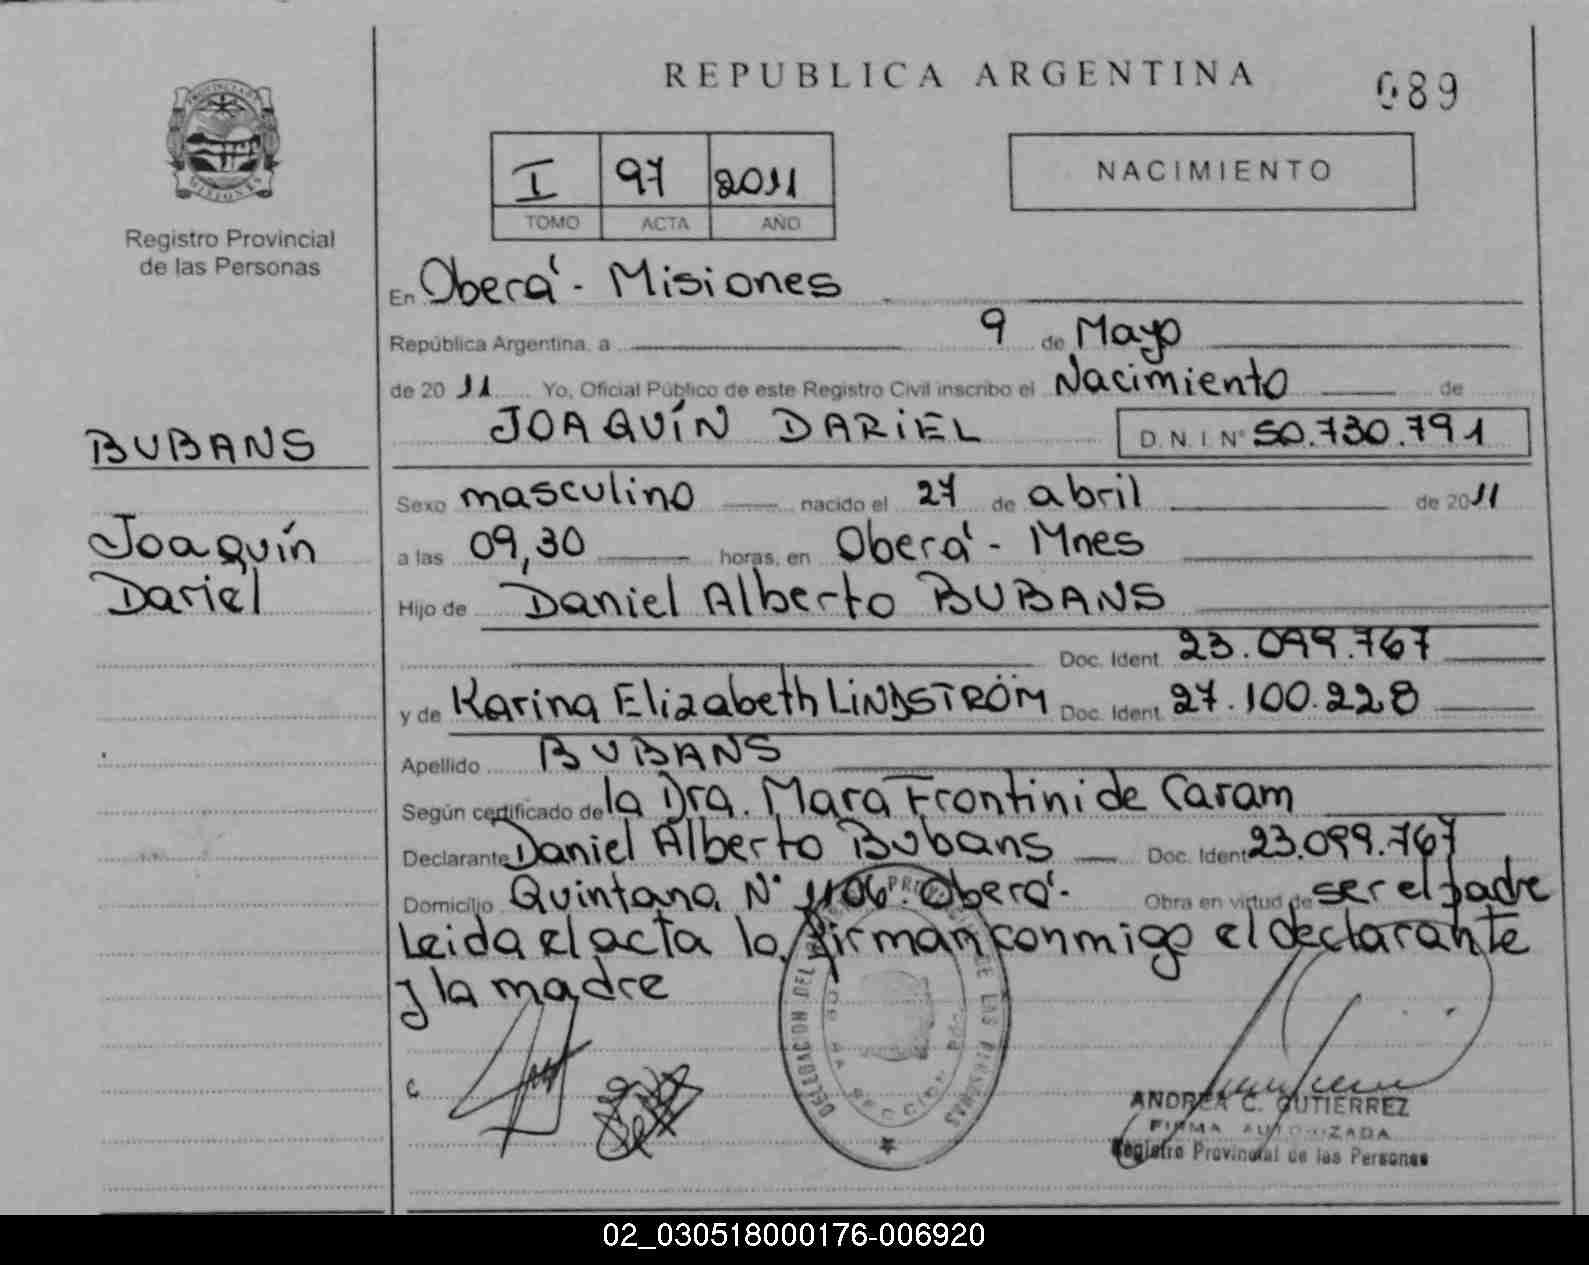 REPUBLICA ARGENTINA
089
I 97 2011
TOMO ACTA AÑO
NACIMIENTO
PROVINCIA DE
MISIONES
Registro Provincial
de las Personas
En Oberá - Misiones
República Argentina, a 9 de Mayo
de 2011 Yo, Oficial Público de este Registro Civil inscribo el Nacimiento de
JOAQUÍN DARIEL D.N.I. Nº 50.730.791
BUBANS
Joaquín
Dariel
Sexo masculino nacido el 27 de abril de 2011
a las 09,30 horas, en Oberá - Mnes
Hijo de Daniel Alberto BUBANS
Doc. Ident. 23.099.767
y de Karina Elizabeth LINDSTRÖM Doc. Ident. 27.100.228
Apellido BUBANS
Según certificado de la Dra. Mara Frontini de Caram
Declarante Daniel Alberto Bubans Doc. Ident 23.099.767
Domicilio Quintana N° 1106. Oberá. Obra en virtud de ser el padre
Leida el acta la firman conmigo el declarante
y la madre
DELEGACION DEL PROVINCIAL DE LAS PERSONAS
SECCION
ANDREA C. GUTIERREZ
FIRMA AUTORIZADA
Registro Provincial de las Personas
02_030518000176-006920